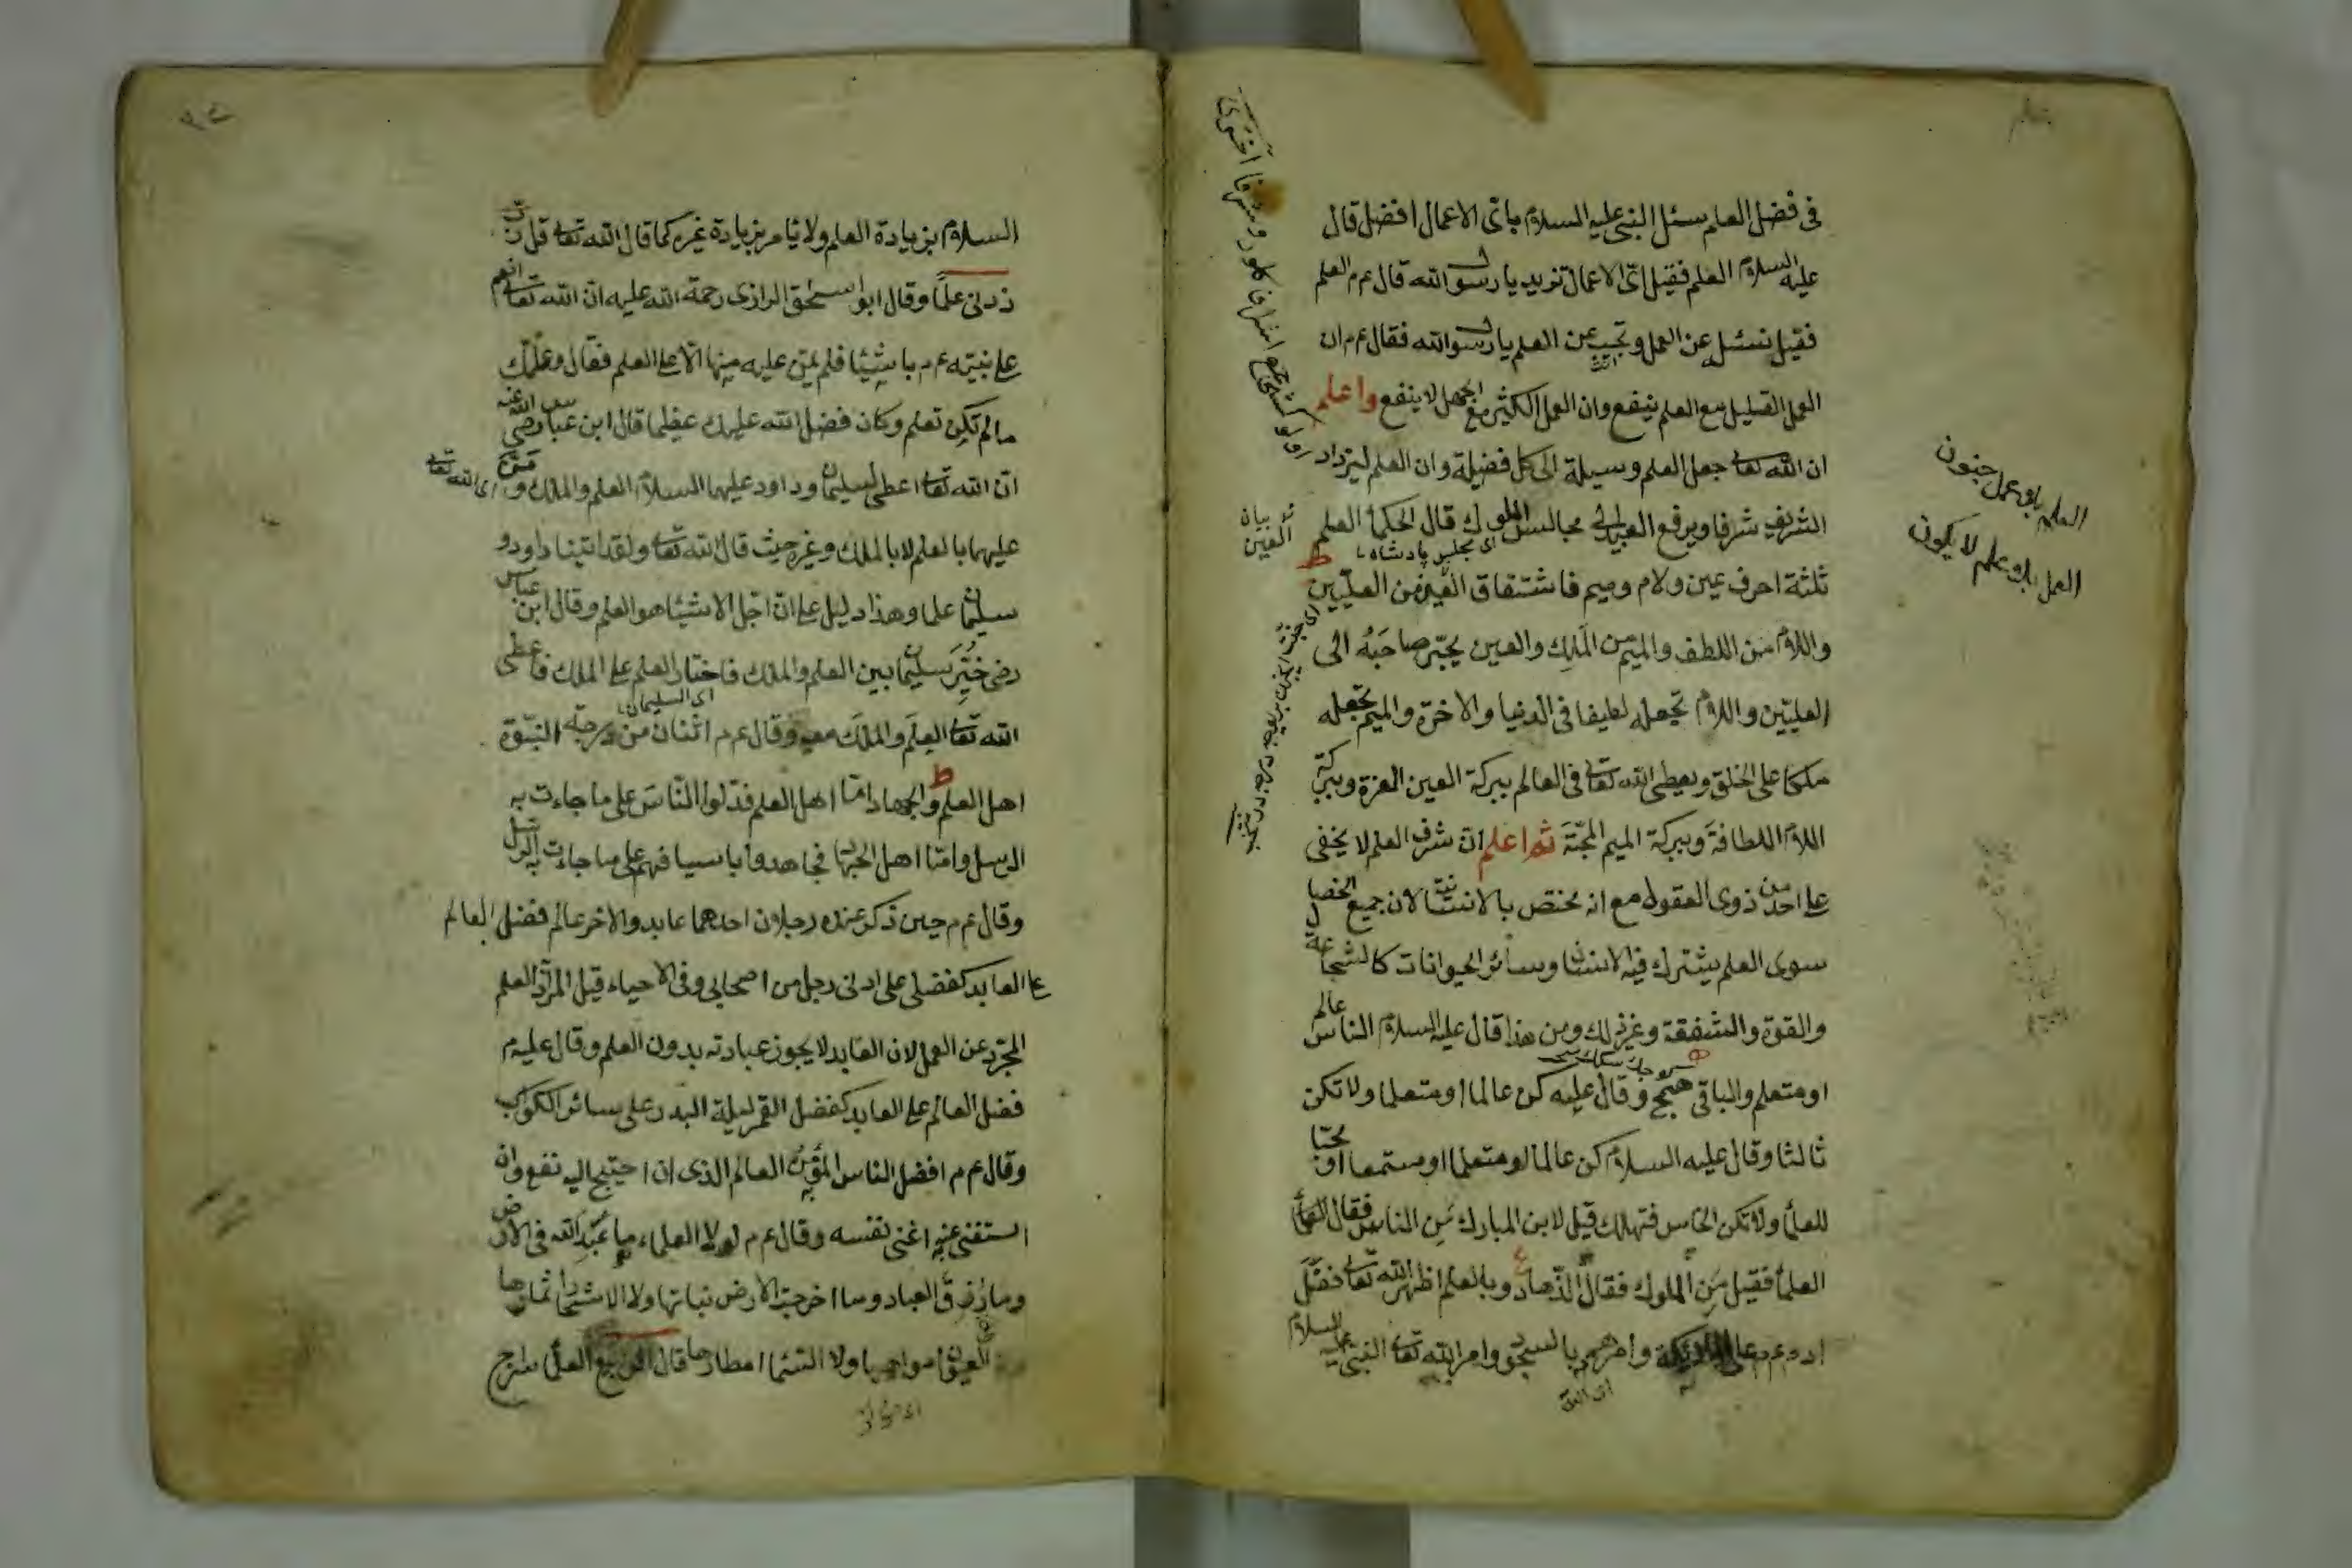 في فضل العلم سئل النبي عليه السلام باى الاعمال افضل قال
عليه السلام العلم فقيل اىّ الاعمال تريد يا رسول الله قال عم العلم
فقيل نسئل عن العمل وتجيب عن العلم يا رسول الله فقال عم ان
العمل القليل مع العلم ينفع وان العمل الكثير مع الجهل لا ينفع واعلم
ان الله تعالى جعل العلم وسيلة الى كل فضيلة وان العلم ليزداد
الشريف شرفا ويرفع العبد الى مجالس الملوك قال الحكماء العلم
اى مجلس پادشاه
ثلثة احرف عين ولام وميم فاشتقاق العين من العليّين
واللام من اللطف والميم من الملك والعين يجبّر صاحبه الى
العليّين واللام تجعله لطيفا في الدنيا والاخرة والميم تجعله
ملكا على الخلق ويعطى الله تعالى في العالم ببركة العين العزة وببركة
اللام اللطافة وببركة الميم المحبّة ثم اعلم ان شرف العلم لا يخفى
على احد من ذوى العقول مع انه مختص بالانسانية لان جميع الخصال
سوى العلم يشترك فيه الانسان وسائر الحيوانات كالشجاعة
والقوة والشفقة وغير ذلك ومن هذا قال عليه السلام الناس عالم
او متعلم والباقى همج وقال عليه كن عالما او متعلما ولا تكن
ثالثا وقال عليه السلام كن عالما او متعلما او مستمعا او محبا
للعلماء ولا تكن الخامس فتهلك قيل لابن المبارك من الناس فقال
العلماء فقيل من الملوك فقال الزّهاد وبالعلم اظهر الله تعالى فضل
ادم عم على الملائكة وامرهم بالسجود وامر الله تعالى النبى عليه السلام
اى الله
العلم بلا عمل جنون
العمل بلا علم لا يكون
بيان العين
السلام بزيادة العلم ولا يامر بزيادة غيره كما قال الله تعالى قل رب
زدنى علما وقال ابو اسحق الرازى رحمة الله عليه ان الله تعالى انعم
على نبيّه عم باشيئا فلم يمنّ عليه منها الا على العلم فقال وعلّمك
مالم تكن تعلم وكان فضل الله عليك عظيما قال ابن عباس رضى الله عنه
ان الله تعالى اعطى لسليمان وداود عليهما السلام العلم والملك و منّ اى الله تعالى
عليهما بالعلم لا بالملك وغيره حيث قال الله تعالى ولقد اتينا داود و
سليمان علما وهذا دليل على انّ اجّل الاشيئا هو العلم وقال ابن عباس
رضى خيّر سليمان بين العلم والملك فاختار العلم على الملك فاعطى
اى السليمان
الله تعالى العلم والملك معه وقال عم اثنان من درجة النبّوة
اهل العلم والجهاد امّا اهل العلم فدّلوا النّاس على ما جاءت به
الرسل وامّا اهل الجهاد فجاهدوا باسيافهم على ما جاءت به الرسل
وقال عم حين ذكر عنده رجلان احدهما عابد والاخر عالم فضل العالم
على العابد كفضلى على ادنى رجل من اصحابى وفى الاحياء قيل المراد العلم
المجرّد عن العمل لان العابد لا يجوز عبادته بدون العلم وقال عليه م
فضل العالم على العابد كفضل القمر ليلة البدر على سائر الكواكب
وقال عم افضل الناس المؤمن العالم الذى ان احتيج اليه نفع وان
استغنى عنه اغنى نفسه وقال عم لولا العلماء ما عبد الله فى الارض
وما رزق العباد وما اخرجت الارض نباتها ولا الاشجار اثمارها
ولا السماء امطارها قال العلماء سراج